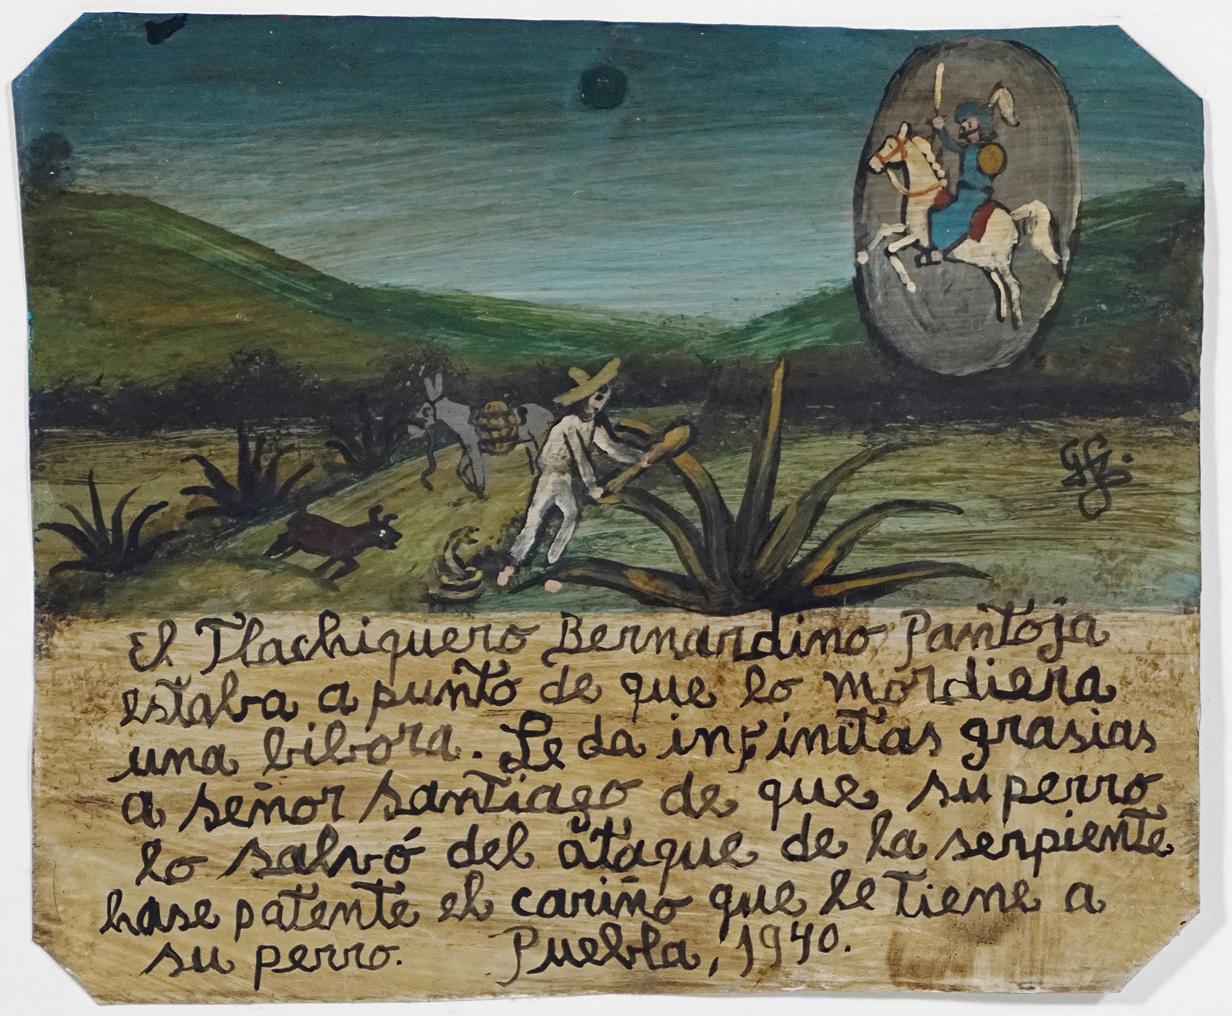 El Tlachiquero Bernardino Pantoja
estaba a punto de que lo mordiera
una bibora. Le da infinitas grasias
a señor Santiago de que su perro
lo salvó del ataque de la serpiente
hase patente el cariño que le tiene a
su perro. Puebla, 1940.